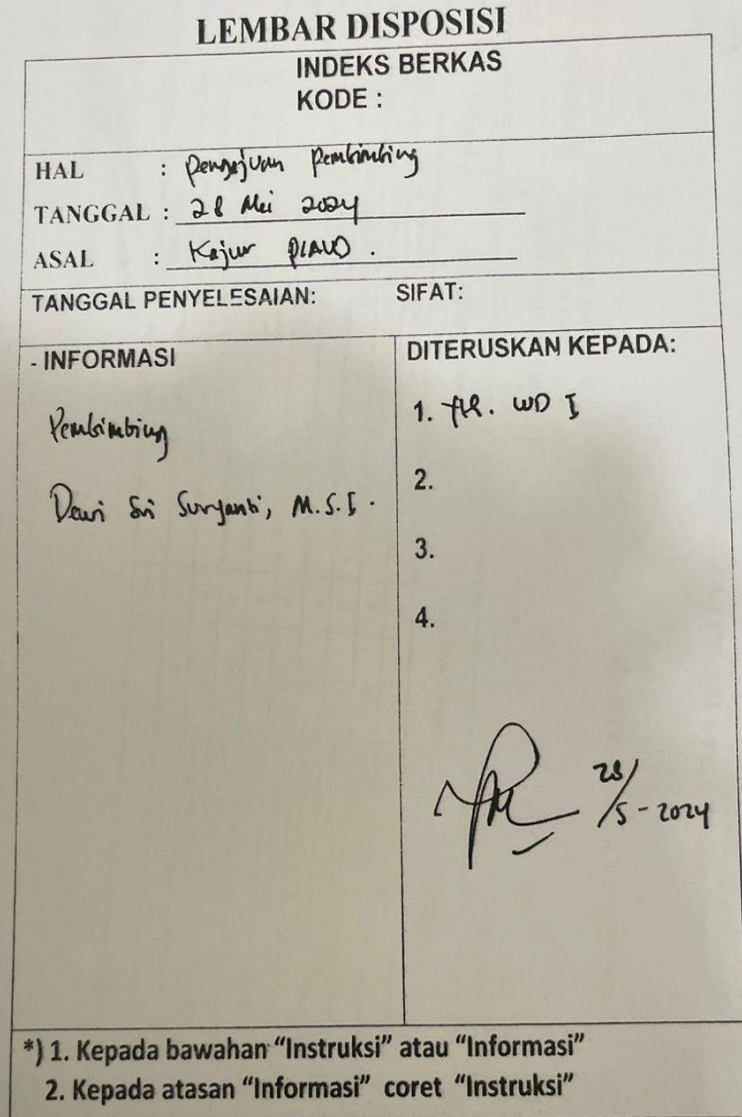 LEMBAR DISPOSISI
INDEKS BERKAS
KODE :
HAL : Pengajuan Pembimbing
TANGGAL : 28 Mei 2024
ASAL : Kajur PIAUD.
TANGGAL PENYELESAIAN: SIFAT:
- INFORMASI
Pembimbing
Dewi Sri Suryanti, M.S.I.
DITERUSKAN KEPADA:
1. Yth. WD I
2.
3.
4.
28/5-2024
*) 1. Kepada bawahan “Instruksi” atau “Informasi”
2. Kepada atasan “Informasi” coret “Instruksi”